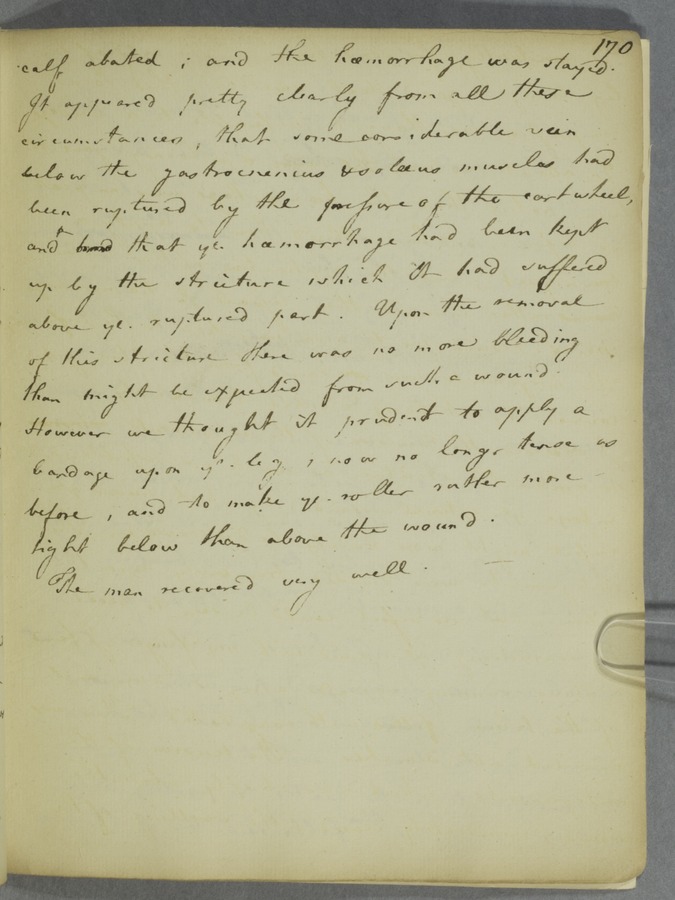 170
calf abated ; and the hæmorrhage was stayed.
It appeared pretty clearly from all these
circumstances, that some considerable vein
below the gastrocnenius & solæus muscles had
been ruptured by the pressure of the cart wheel,
and that ye. hæmorrhage had been kept
up by the stricture which it had suffered
above ye. ruptured part. Upon the removal
of this stricture there was no more bleeding
than might be expected from such a wound.
However we thought it prudent to apply a
bandage upon ye. leg, now no longer tense as
before, and to make ye. roller rather more
tight below than above the wound.
The man recovered very well.